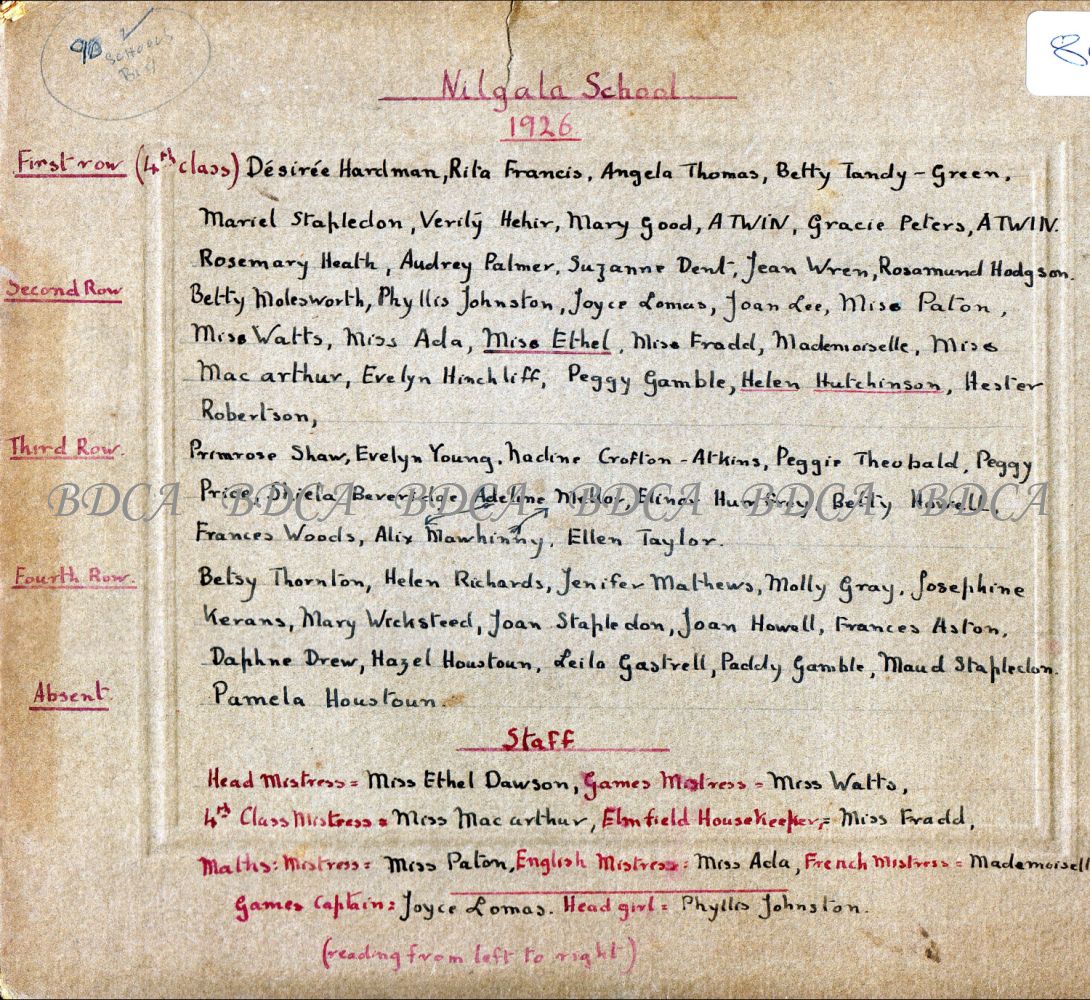 90
SCHOOLS
BI
8
Nilgala School.
1926
First row (4th class) Désirée Hardman, Rita Francis, Angela Thomas, Betty Tandy-Green,
Mariel Stapledon, Verily Hehir, Mary Good, A TWIN, Gracie Peters, A TWIN.
Rosemary Heath, Audrey Palmer, Suzanne Dent, Jean Wren, Rosamund Hodgson.
Second Row Betty Molesworth, Phyllis Johnston, Joyce Lomas, Joan Lee, Miss Paton,
Miss Watts, Miss Ada, Miss Ethel, Miss Fradd, Mademoiselle, Miss
Macarthur, Evelyn Hinchliff, Peggy Gamble, Helen Hutchinson, Hester
Robertson,
Third Row. Primrose Shaw, Evelyn Young, Nadine Crofton-Atkins, Peggie Theobald, Peggy
Price, Shiela Beveridge Adeline Mellor, Elinor Humfrey Betty Howell,
BDCA BDCA BDCA BDCA BDCA BDCA
Frances Woods, Alix Mawhinny, Ellen Taylor.
Fourth Row. Betsy Thornton, Helen Richards, Jenifer Mathews, Molly Gray, Josephine
Kerans, Mary Wicksteed, Joan Stapledon, Joan Howell, Frances Aston,
Daphne Drew, Hazel Houstoun, Leila Gastrell, Paddy Gamble, Maud Stapledon.
Absent Pamela Houstoun.
Staff
Head Mistress = Miss Ethel Dawson, Games Mistress = Miss Watts,
4th Class Mistress = Miss Macarthur, Elmfield Housekeeper, = Miss Fradd,
Maths: Mistress = Miss Paton, English Mistress = Miss Ada, French Mistress = Mademoisell
Games Captain: Joyce Lomas. Head girl = Phyllis Johnston.
(reading from left to right)